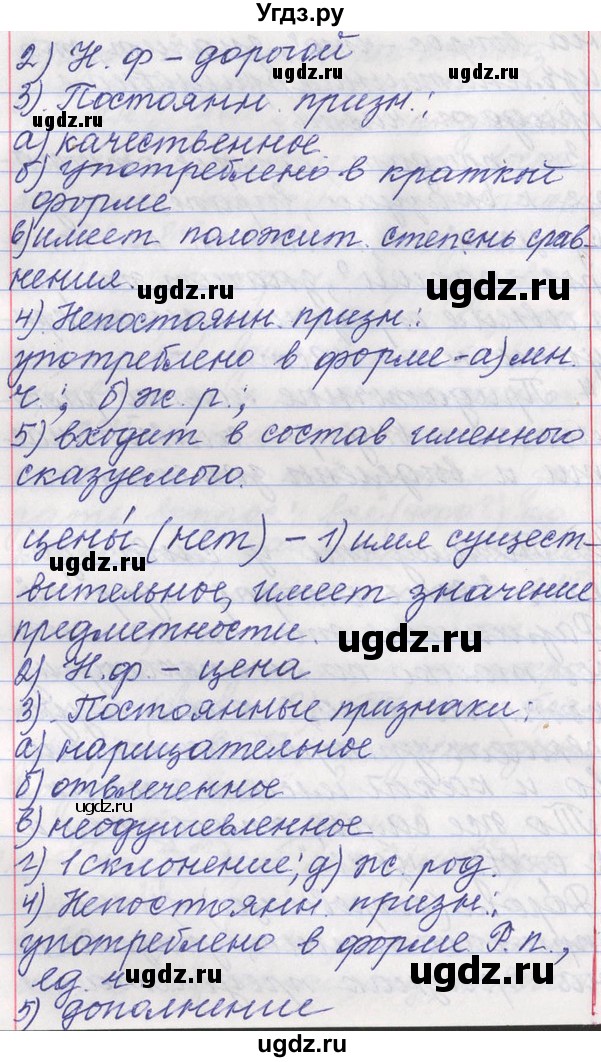 Угдз.ру
2) Н. ф – дорогой
3). Постоянн. призн.:
а) качественное
б) употреблено в краткой
форме
в) имеет положит. степень срав-
нения.
4). Непостоянн. призн.:
употреблено в форме - а) мн.
ч.; б) ж. р.;
5) входит в состав именного
сказуемого.
цены́ (нет) – 1) имя сущест-
вительное, имеет значение
предметности.
2) Н.ф. – цена
3). Постоянные признаки:
а) нарицательное
б) отвлеченное
в) неодушевленное
г) 1 склонение; д) ж. род.
4) Непостоянн. призн.:
употреблено в форме Р. п.,
ед. ч
5) дополнение
ugdz.ru
ugdz.ru
ugdz.ru
ugdz.ru
ugdz.ru
ugdz.ru
ugdz.ru
ugdz.ru
ugdz.ru
ugdz.ru
ugdz.ru
ugdz.ru
ugdz.ru
ugdz.ru